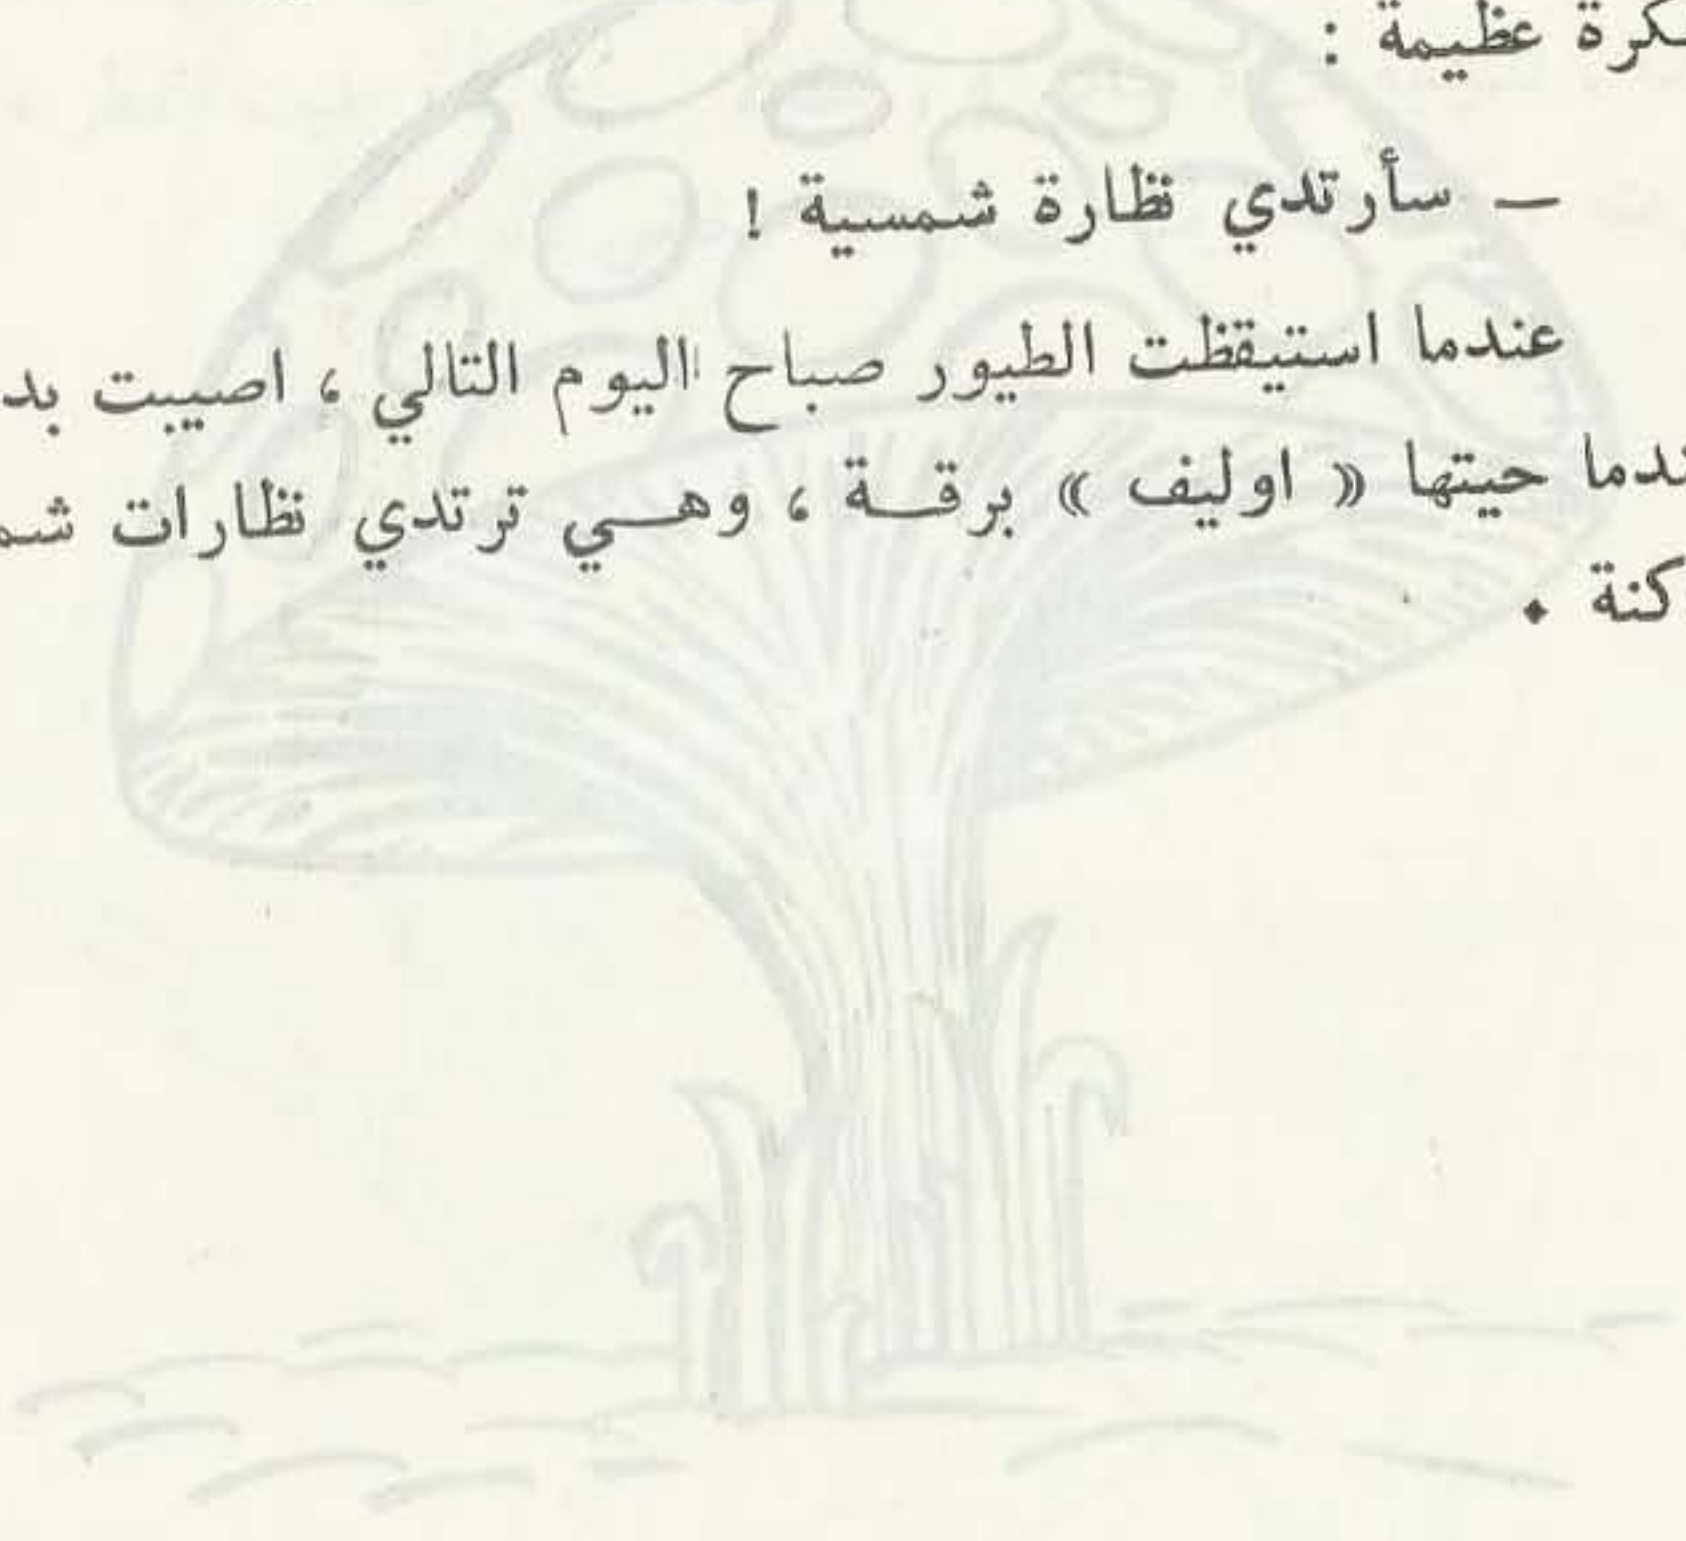 كرة عظيمة :
– سأرتدي نظارة شمسية !
عندما استيقظت الطيور صباح اليوم التالي ، اصيبت بد
ندما حيتها « اوليف » برقـة ، وهـي ترتدي نظارات شم
كنة .